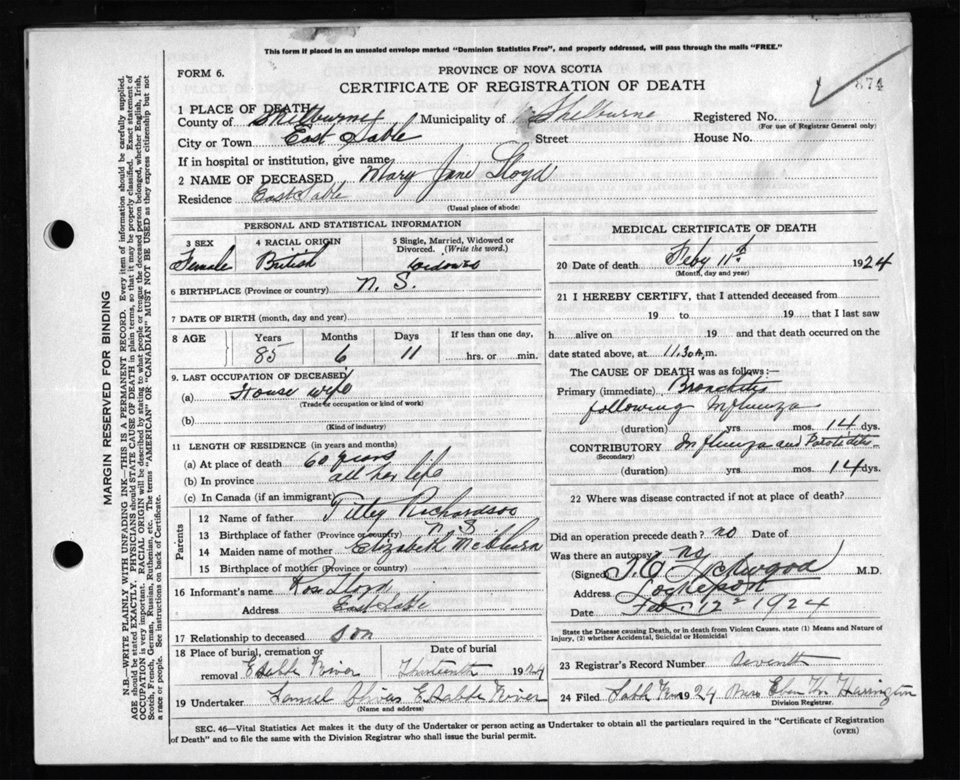 This form if placed in an unsealed envelope marked "Dominion Statistics Free", and properly addressed, will pass through the mails "FREE."
FORM 6.
PROVINCE OF NOVA SCOTIA
CERTIFICATE OF REGISTRATION OF DEATH
874
1 PLACE OF DEATH
County of Shelburne Municipality of Shelburne Registered No.
(For use of Registrar General only)
City or Town East Sable Street House No.
If in hospital or institution, give name
2 NAME OF DECEASED Mary Jane Lloyd
Residence East Sable
(Usual place of abode)
PERSONAL AND STATISTICAL INFORMATION
3 SEX 4 RACIAL ORIGIN 5 Single, Married, Widowed or Divorced. (Write the word.)
Female British widowed
6 BIRTHPLACE (Province or country) N. S.
7 DATE OF BIRTH (month, day and year)
8 AGE Years Months Days If less than one day,
85 6 11 hrs. or min.
9. LAST OCCUPATION OF DECEASED
(a) House wife
(Trade or occupation or kind of work)
(b)
(Kind of industry)
11 LENGTH OF RESIDENCE (in years and months)
(a) At place of death 60 years
(b) In province all her life
(c) In Canada (if an immigrant)
Parents
12 Name of father Tilley Richardson
13 Birthplace of father (Province or country) N S
14 Maiden name of mother Elizabeth
15 Birthplace of mother (Province or country)
16 Informant's name Lloyd
Address East Sable
17 Relationship to deceased son
18 Place of burial, cremation or removal E Sable River Date of burial Thirteenth 1924
19 Undertaker E Sable River
(Name and address)
MEDICAL CERTIFICATE OF DEATH
20 Date of death Feby 11th 1924
(Month, day and year)
21 I HEREBY CERTIFY, that I attended deceased from
19 to 19 that I last saw
h alive on 19 and that death occurred on the
date stated above, at 11.30 a,m.
The CAUSE OF DEATH was as follows:—
Primary (immediate) Bronchitis
following Influenza
(duration) yrs. mos. 14 dys.
CONTRIBUTORY Influenza and Parotiditis
(Secondary)
(duration) yrs. mos. 14 dys.
22 Where was disease contracted if not at place of death?
Did an operation precede death? no Date of
Was there an autopsy no
(Signed) M.D.
Address Lockeport
Date Feb. 12 1924
State the Disease causing Death, or in death from Violent Causes. state (1) Means and Nature of Injury, (2) whether Accidental, Suicidal or Homicidal
23 Registrar's Record Number seventh
24 Filed 1924 Mrs Eben Harrington
Division Registrar.
SEC. 46—Vital Statistics Act makes it the duty of the Undertaker or person acting as Undertaker to obtain all the particulars required in the "Certificate of Registration of Death" and to file the same with the Division Registrar who shall issue the burial permit.
(OVER)
MARGIN RESERVED FOR BINDING
N.B.—WRITE PLAINLY WITH UNFADING INK—THIS IS A PERMANENT RECORD. Every item of information should be carefully supplied.
AGE should be stated EXACTLY. PHYSICIANS should STATE CAUSE OF DEATH in plain terms, so that it may be properly classified. Exact statement of
OCCUPATION is very important. RACIAL ORIGIN will be described by stating to what people or tongue the deceased person belonged, whether English, Irish,
Scotch, French, German, Russian, Ruthenian, etc. The terms "AMERICAN" OR "CANADIAN" MUST NOT BE USED as they express citizenship but not
a race or people. See instructions on back of Certificate.